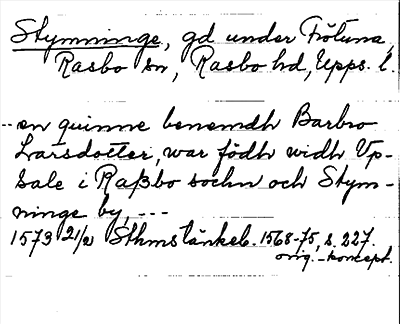 Stymninge, gd under Frötuna,
Rasbo sn, Rasbo hd, Upps. l.
--- en quinne benemdh Barbro
Larsdotter, war födh widh Vp-
sale i Raßbo sochn och Stym-
ninge by, ---
1573 21/2 Sthms tänkeb. 1568-75, s. 227.
orig.-koncept.